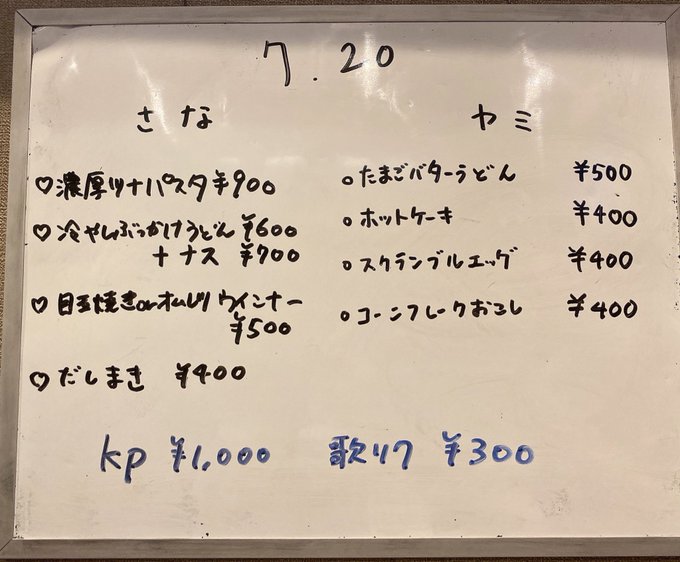 7.20
さな
♡濃厚ツナパスタ¥900
♡冷やしぶっかけうどん ¥600
+ナス ¥700
♡目玉焼きorオムレツ ウインナー
¥500
♡だしまき ¥400
ヤミ
○たまごバターうどん ¥500
○ホットケーキ ¥400
○スクランブルエッグ ¥400
○コーンフレークおこし ¥400
kp ¥1,000 歌リク ¥300